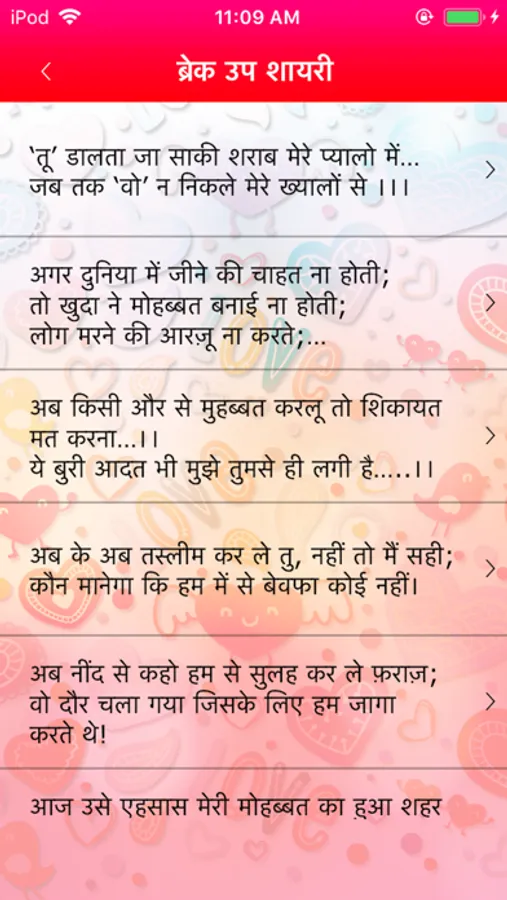 iPod 11:09 AM
ब्रेक उप शायरी
‘तू’ डालता जा साकी शराब मेरे प्यालो में...
जब तक ‘वो’ न निकले मेरे ख्यालों से ।।।
अगर दुनिया में जीने की चाहत ना होती;
तो खुदा ने मोहब्बत बनाई ना होती;
लोग मरने की आरज़ू ना करते;...
अब किसी और से मुहब्बत करलू तो शिकायत
मत करना...।।
ये बुरी आदत भी मुझे तुमसे ही लगी है.....।।
अब के अब तस्लीम कर ले तु, नहीं तो मैं सही;
कौन मानेगा कि हम में से बेवफा कोई नहीं।
अब नींद से कहो हम से सुलह कर ले फ़राज़;
वो दौर चला गया जिसके लिए हम जागा
करते थे!
आज उसे एहसास मेरी मोहब्बत का हुआ शहर